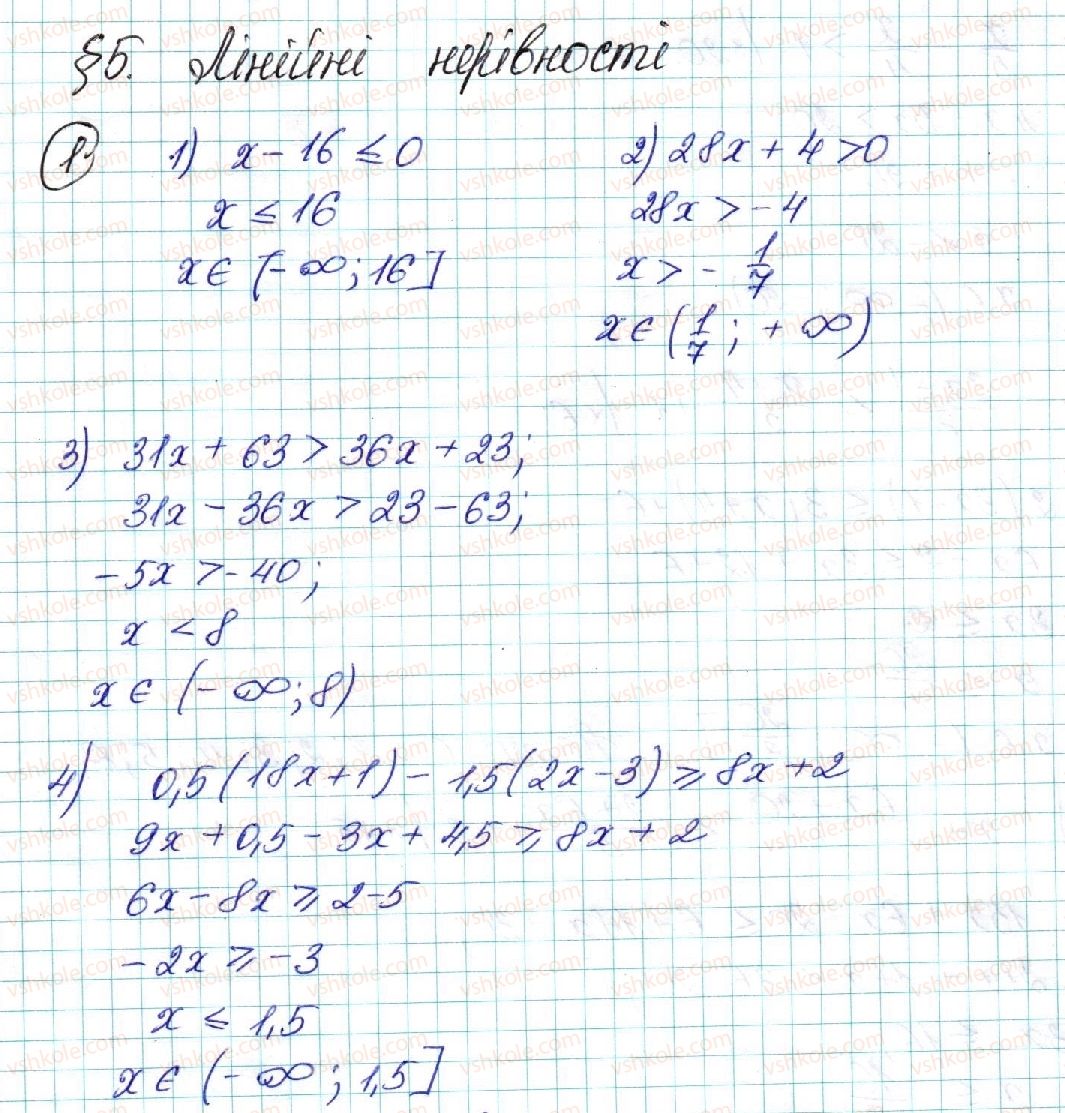 §5. Лінійні нерівності
1. 1) x - 16 ≤ 0
x ≤ 16
x ∈ [-∞; 16]
2) 28x + 4 > 0
28x > -4
x > - 1/7
x ∈ (1/7; +∞)
3) 31x + 63 > 36x + 23;
31x - 36x > 23 - 63;
-5x > -40;
x < 8
x ∈ (-∞; 8)
4) 0,5(18x+1) - 1,5(2x-3) ≥ 8x + 2
9x + 0,5 - 3x + 4,5 ≥ 8x + 2
6x - 8x ≥ 2-5
-2x ≥ -3
x ≤ 1,5
x ∈ (-∞; 1,5]
vshkole.com